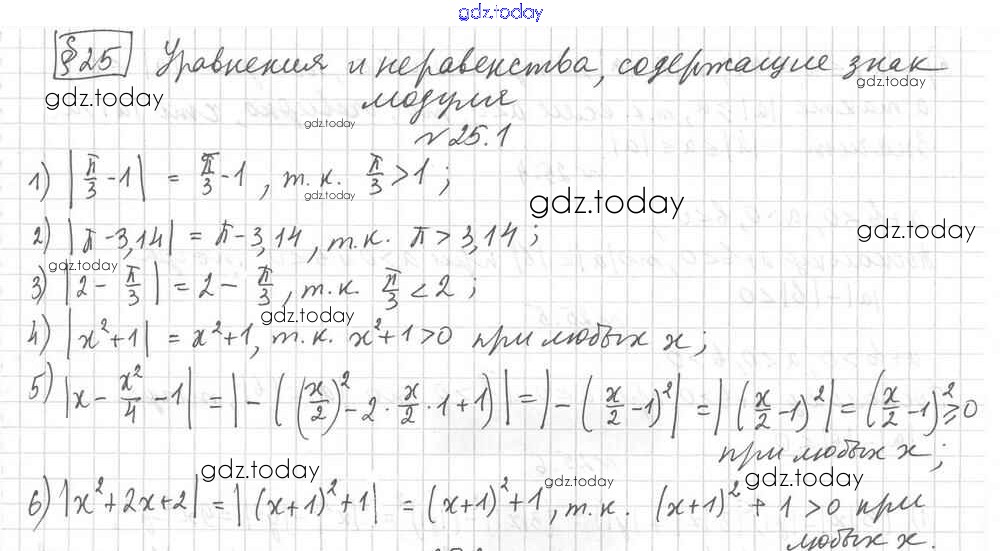 gdz.today
§25 Уравнения и неравенства, содержащие знак
gdz.today
gdz.today
модуля
gdz.today
№25.1
1) |π/3 - 1| = π/3 - 1, т.к. π/3 > 1;
gdz.today
gdz.today
2) |π - 3,14| = π - 3,14, т.к. π > 3,14;
gdz.today
gdz.today
3) |2 - π/3| = 2 - π/3, т.к. π/3 < 2;
gdz.today
4) |x²+1| = x²+1, т.к. x²+1>0 при любых x;
5) |x - x²/4 - 1| = |-((x/2)² - 2 · x/2 · 1 + 1)| = |-(x/2 - 1)²| = |(x/2 - 1)²| = (x/2 - 1)² ≥ 0
при любых x;
gdz.today
gdz.today
gdz.today
6) |x²+2x+2| = |(x+1)²+1| = (x+1)²+1, т.к. (x+1)² + 1 > 0 при
любых x.